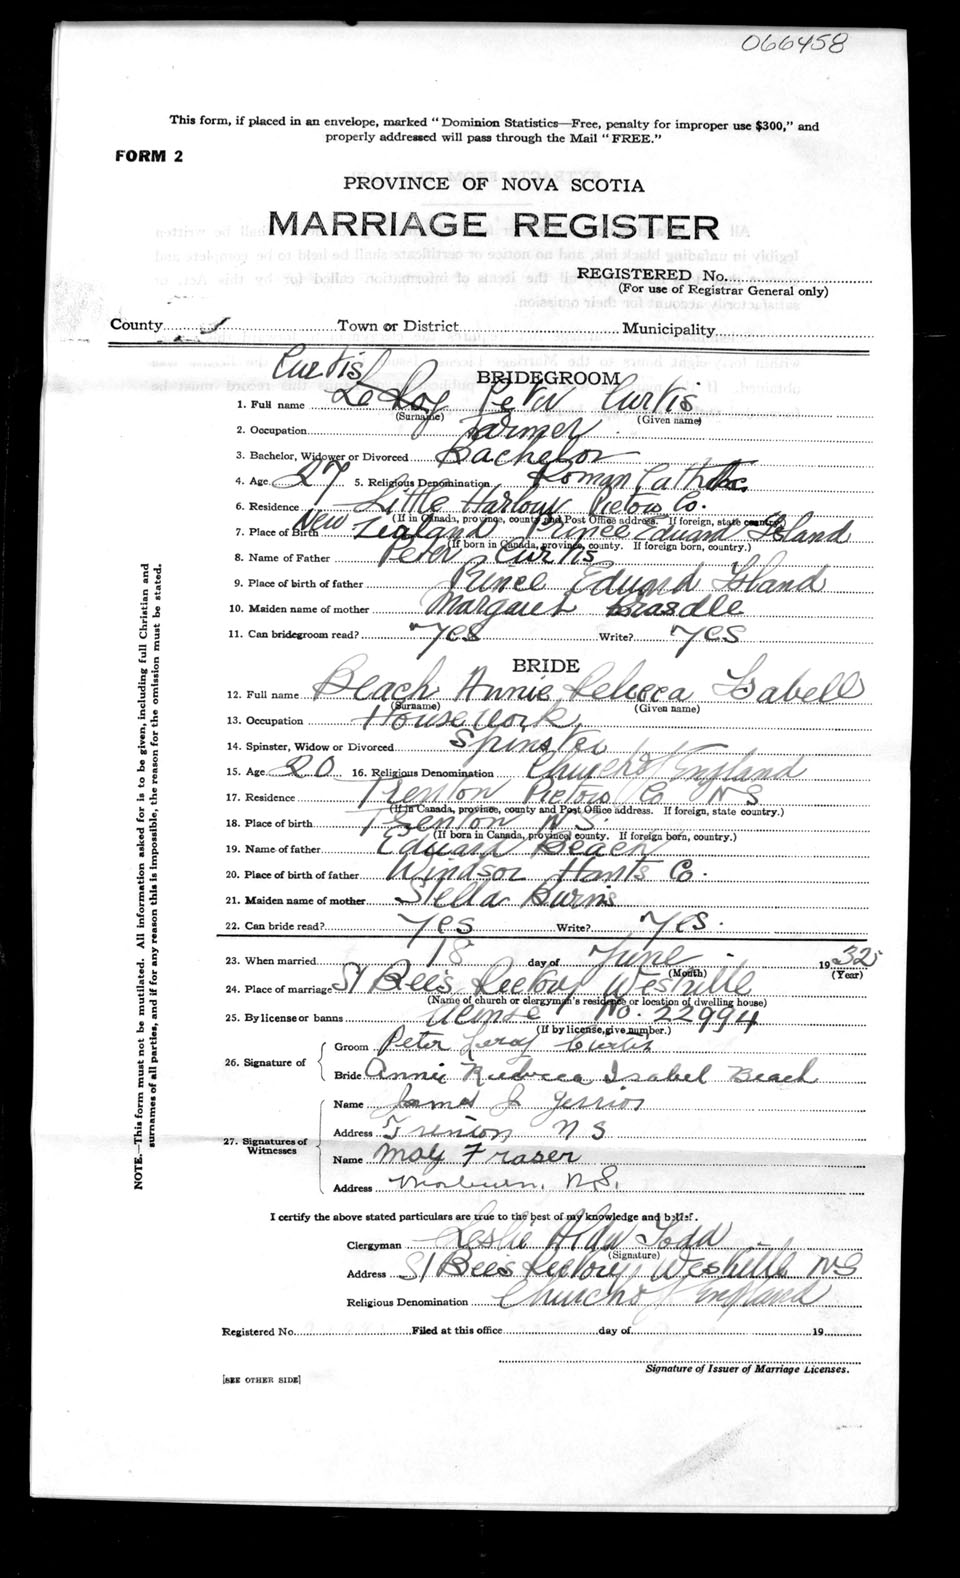 066458
This form, if placed in an envelope, marked "Dominion Statistics—Free, penalty for improper use $300," and
properly addressed will pass through the Mail "FREE."
FORM 2
PROVINCE OF NOVA SCOTIA
MARRIAGE REGISTER
REGISTERED No.
(For use of Registrar General only)
County Town or District Municipality
Curtis
BRIDEGROOM
1. Full name LeRoy Peter Curtis
(Surname) (Given name)
2. Occupation Farmer
3. Bachelor, Widower or Divorced Bachelor
4. Age 27 5. Religious Denomination Roman Catholic
6. Residence Little Harbour Pictou Co.
(If in Canada, province, county and Post Office address. If foreign, state country)
7. Place of Birth New Zealand Prince Eduard Island
(If born in Canada, province, county. If foreign born, country.)
8. Name of Father Peter Curtis
9. Place of birth of father Prince Eduard Island
10. Maiden name of mother Margaret
11. Can bridegroom read? Yes Write? Yes
BRIDE
12. Full name Beach Annie Rebecca Isabell
(Surname) (Given name)
13. Occupation House Work
14. Spinster, Widow or Divorced Spinster
15. Age 20 16. Religious Denomination Church of England
17. Residence Trenton Pictou Co NS
(If in Canada, province, county and Post Office address. If foreign, state country.)
18. Place of birth Trenton N.S.
(If born in Canada, province, county. If foreign born, country.)
19. Name of father Eduard Beach
20. Place of birth of father Windsor Hants Co.
21. Maiden name of mother Stella Burns
22. Can bride read? Yes Write? Yes.
23. When married 18 day of June 1932
(Month) (Year)
24. Place of marriage St Bees Rectory Westville
(Name of church or clergyman's residence or location of dwelling house)
25. By license or banns License No. 22994
(If by license, give number.)
26. Signature of
Groom Peter Leroy Curtis
Bride Annie Rebecca Isabel Beach
27. Signatures of Witnesses
Name James J
Address Trenton N S
Name May Fraser
Address N.S.
I certify the above stated particulars are true to the best of my knowledge and belief.
Clergyman Leslie Todd
(Signature)
Address St Bees Rectory Westville NS
Religious Denomination Church of England
Registered No. Filed at this office day of 19
Signature of Issuer of Marriage Licenses.
[SEE OTHER SIDE]
NOTE.—This form must not be mutilated. All information asked for is to be given, including full Christian and
surnames of all parties, and if for any reason this is impossible, the reason for the omission must be stated.